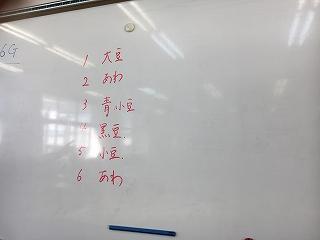 6G
1 大豆
2 あわ
3 青小豆
4 黒豆.
5 小豆.
6 あわ